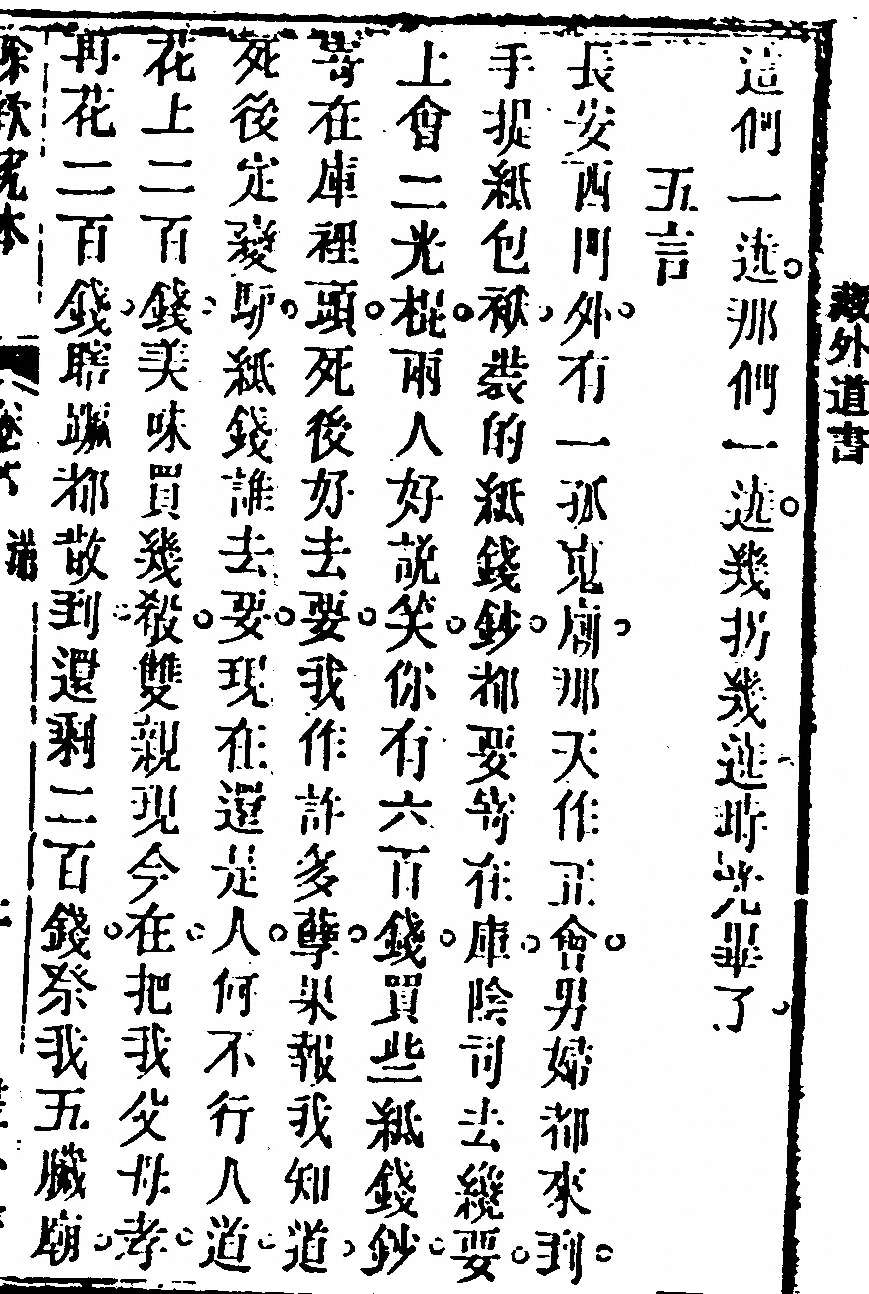 藏外道書
這們一遶那們一遶幾拐幾遶時光畢了
五言
長安西門外有一孤鬼廟那天作正會男婦都來到
手提紙包袱裝的紙錢鈔都要寄在庫陰司去纔要
上會二光棍兩人好說笑你有六百錢買些紙錢鈔
寄在庫裡頭死後好去要我作許多孽果報我知道
死後定變馿紙錢誰去要現在還是人何不行人道
花上二百錢美味買幾殽雙親現今在把我父母孝
再花二百錢瞎蹦都散到還剩二百錢祭我五臟廟